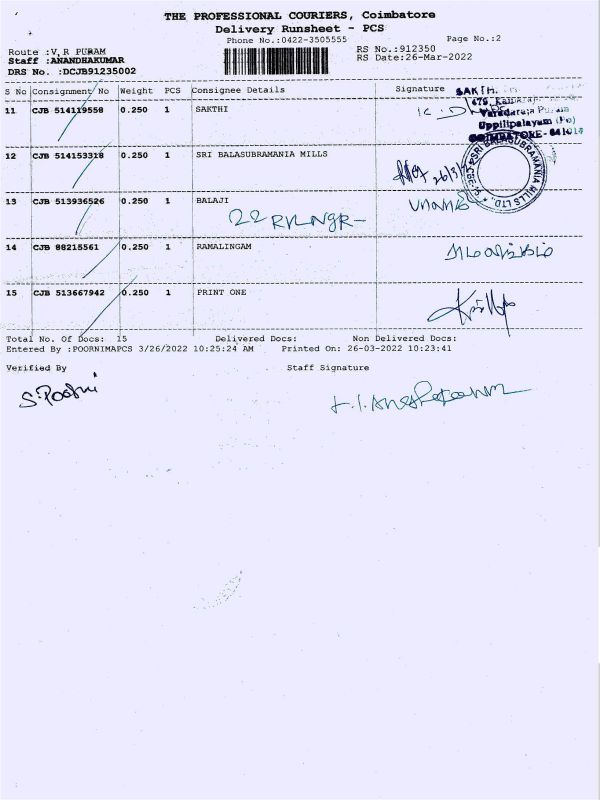 THE PROFESSIONAL COURIERS, Coimbatore
Delivery Runsheet - PCS
Phone No.:0422-3505555
Page No.:2
Route :V.R PURAM
RS No.:912350
Staff :ANANDHAKUMAR
RS Date:26-Mar-2022
DRS No. :DCJB91235002
S No Consignment No Weight PCS Consignee Details Signature
SAKTHI
Varadaraja Puram
Uppilipalayam (Po)
COIMBATORE - 641015
11 CJB 514119558 0.250 1 SAKTHI
12 CJB 514153318 0.250 1 SRI BALASUBRAMANIA MILLS
26/3/
SRI BALASUBRAMANIA MILLS LTD. * CBE-15 *
13 CJB 513936526 0.250 1 BALAJI
22 RVL NGR
14 CJB 88215561 0.250 1 RAMALINGAM
15 CJB 513667942 0.250 1 PRINT ONE
Total No. Of Docs: 15 Delivered Docs: Non Delivered Docs:
Entered By :POORNIMAPCS 3/26/2022 10:25:24 AM Printed On: 26-03-2022 10:23:41
Verified By Staff Signature
S. Poorni